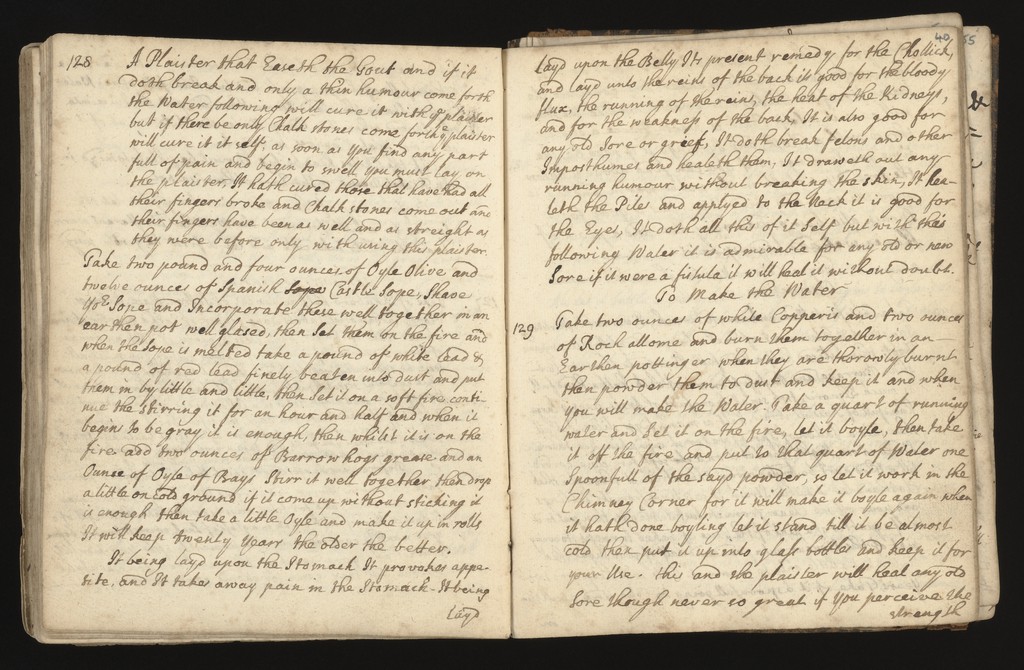 128 A Plaister that Easeth the Gout and if it
doth break and only a thin humour come forth
the Water following will cure it with ye plaister
but if there be only Chalk stones come forth ye plaister
will cure it it self, as soon as you find any part
full of pain and begin to swell you must lay on
the plaister, It hath cured those that have had all
their fingers broke and Chalk stones come out and
their fingers have been as well and as streight as
they were before only with using this plaister.
Take two pound and four ounces of Oyle Olive and
twelve ounces of Spanish Sope Castle Sope, Shave
yor Sope and Incorporate these well together in an
earthen pot well glased, then Set them on the fire and
when the Sope is melted take a pound of white lead &
a pound of red lead finely beaten into dust and put
them in by little and little, then Set it on a soft fire conti-
nue the stirring it for an hour and half and when it
begins to be gray it is enough, then whilst it is on the
fire add two ounces of Barrow hogs grease and an
Ounce of Oyle of Bays Stirr it well together then drop
a little on cold ground if it come up without sticking it
is enough then take a little Oyle and make it up in rolls
It will keep Twenty years the older the better.
It being layd upon the Stomack It provokes appe-
tite, and It takes away pain in the Stomack. It being
layd
40
55
layd upon the Belly Its present remedy for the Chollick,
and layd unto the reins of the back is good for the bloody
flux, the running of the reins, the heat of the Kidneys,
and for the weakness of the back, It is also good for
any old Sore or greef, It doth break felons and other
Imposthumes and healeth them, It draweth out any
running humour without breaking the skin, It hea-
leth the Piles and applyed to the Neck it is good for
the Eyes, It doth all this of it Self but with this
following Water it is admirable for any old or new
Sore if it were a fistula it will heal it without doubt.
To Make the Water
129 Take two ounces of white Copperis and two ounces
of Rock allome and burn them together in an
Earthen pottinger when they are thorowly burnt
then powder them to dust and keep it and when
you will make the Water. Take a quart of running
water and Set it on the fire, let it boyle, then take
it off the fire and put to that quart of Water one
Spoonfull of the sayd powder, so let it work in the
Chimney Corner for it will make it boyle again when
it hath done boyling let it stand till it be almost
cold then put it up into glass bottles and keep it for
your Use. this and the plaister will heal any old
Sore though never so great if you perceive the
strength